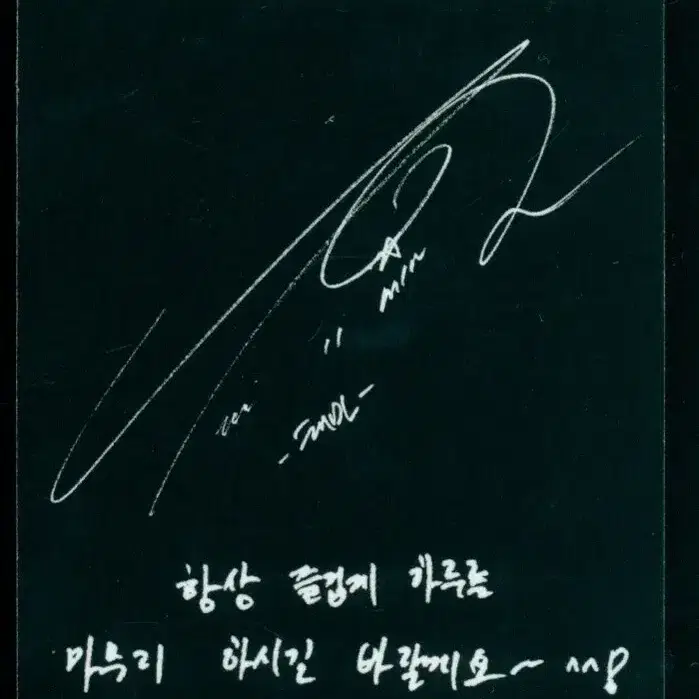 min
항상 즐겁게 하루를
마무리 하시길 바랄께요~ ^^8